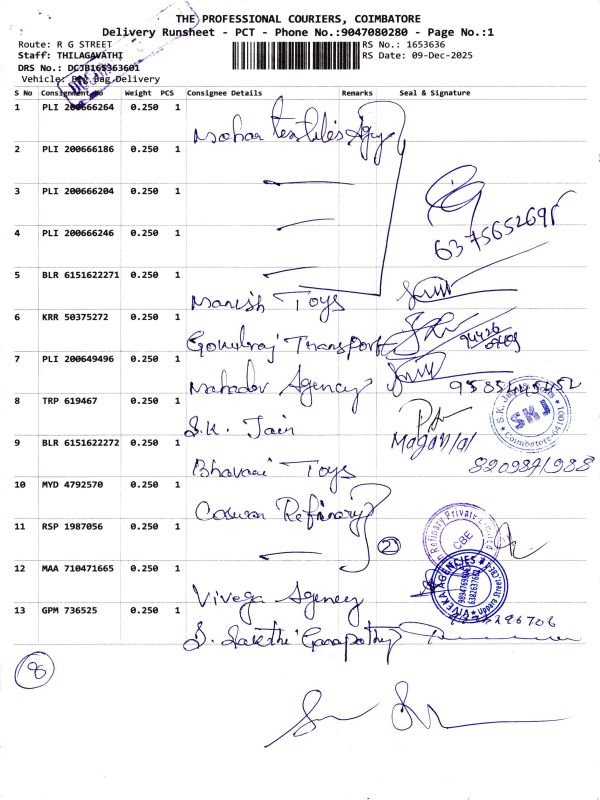 THE PROFESSIONAL COURIERS, COIMBATORE
Delivery Runsheet - PCT - Phone No.:9047080280 - Page No.:1
Route: R G STREET RS No.: 1653636
Staff: THILAGAVATHI RS Date: 09-Dec-2025
DRS No.: DCJB165363601
Vehicle: Delivery
S No Consignment No Weight PCS Consignee Details Remarks Seal & Signature
1 PLI 200666264 0.250 1 Mohan textiles Agy
2 PLI 200666186 0.250 1
3 PLI 200666204 0.250 1
4 PLI 200666246 0.250 1
6375652695
5 BLR 6151622271 0.250 1 Manish Toys
6 KRR 50375272 0.250 1 Gokulraj Transport
7 PLI 200649496 0.250 1 Mahadev Agency
8 TRP 619467 0.250 1 S.K. Jain
SKJ
9 BLR 6151622272 0.250 1 Bhavani Toys
10 MYD 4792570 0.250 1 Refinary
11 RSP 1987056 0.250 1
2
Refinery Private Limited
CBE
12 MAA 710471665 0.250 1 Vivega Agency
VIVEKA AGENCIES
13 GPM 736525 0.250 1 S. Sakthi Ganapathy